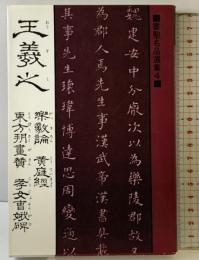 ■書聖名品選集4■
魏建安中分厭次以為樂陵郡故又
為郡人焉先生事漢武帝漢書具載
其事先生瓌瑋博達思周變通以
王羲之
樂毅論 黄庭經
東方朔畫賛 孝女曹娥碑